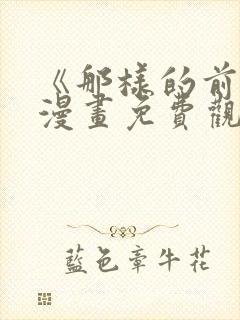 《那樣的前
漫畫免費觀
藍色牽牛花